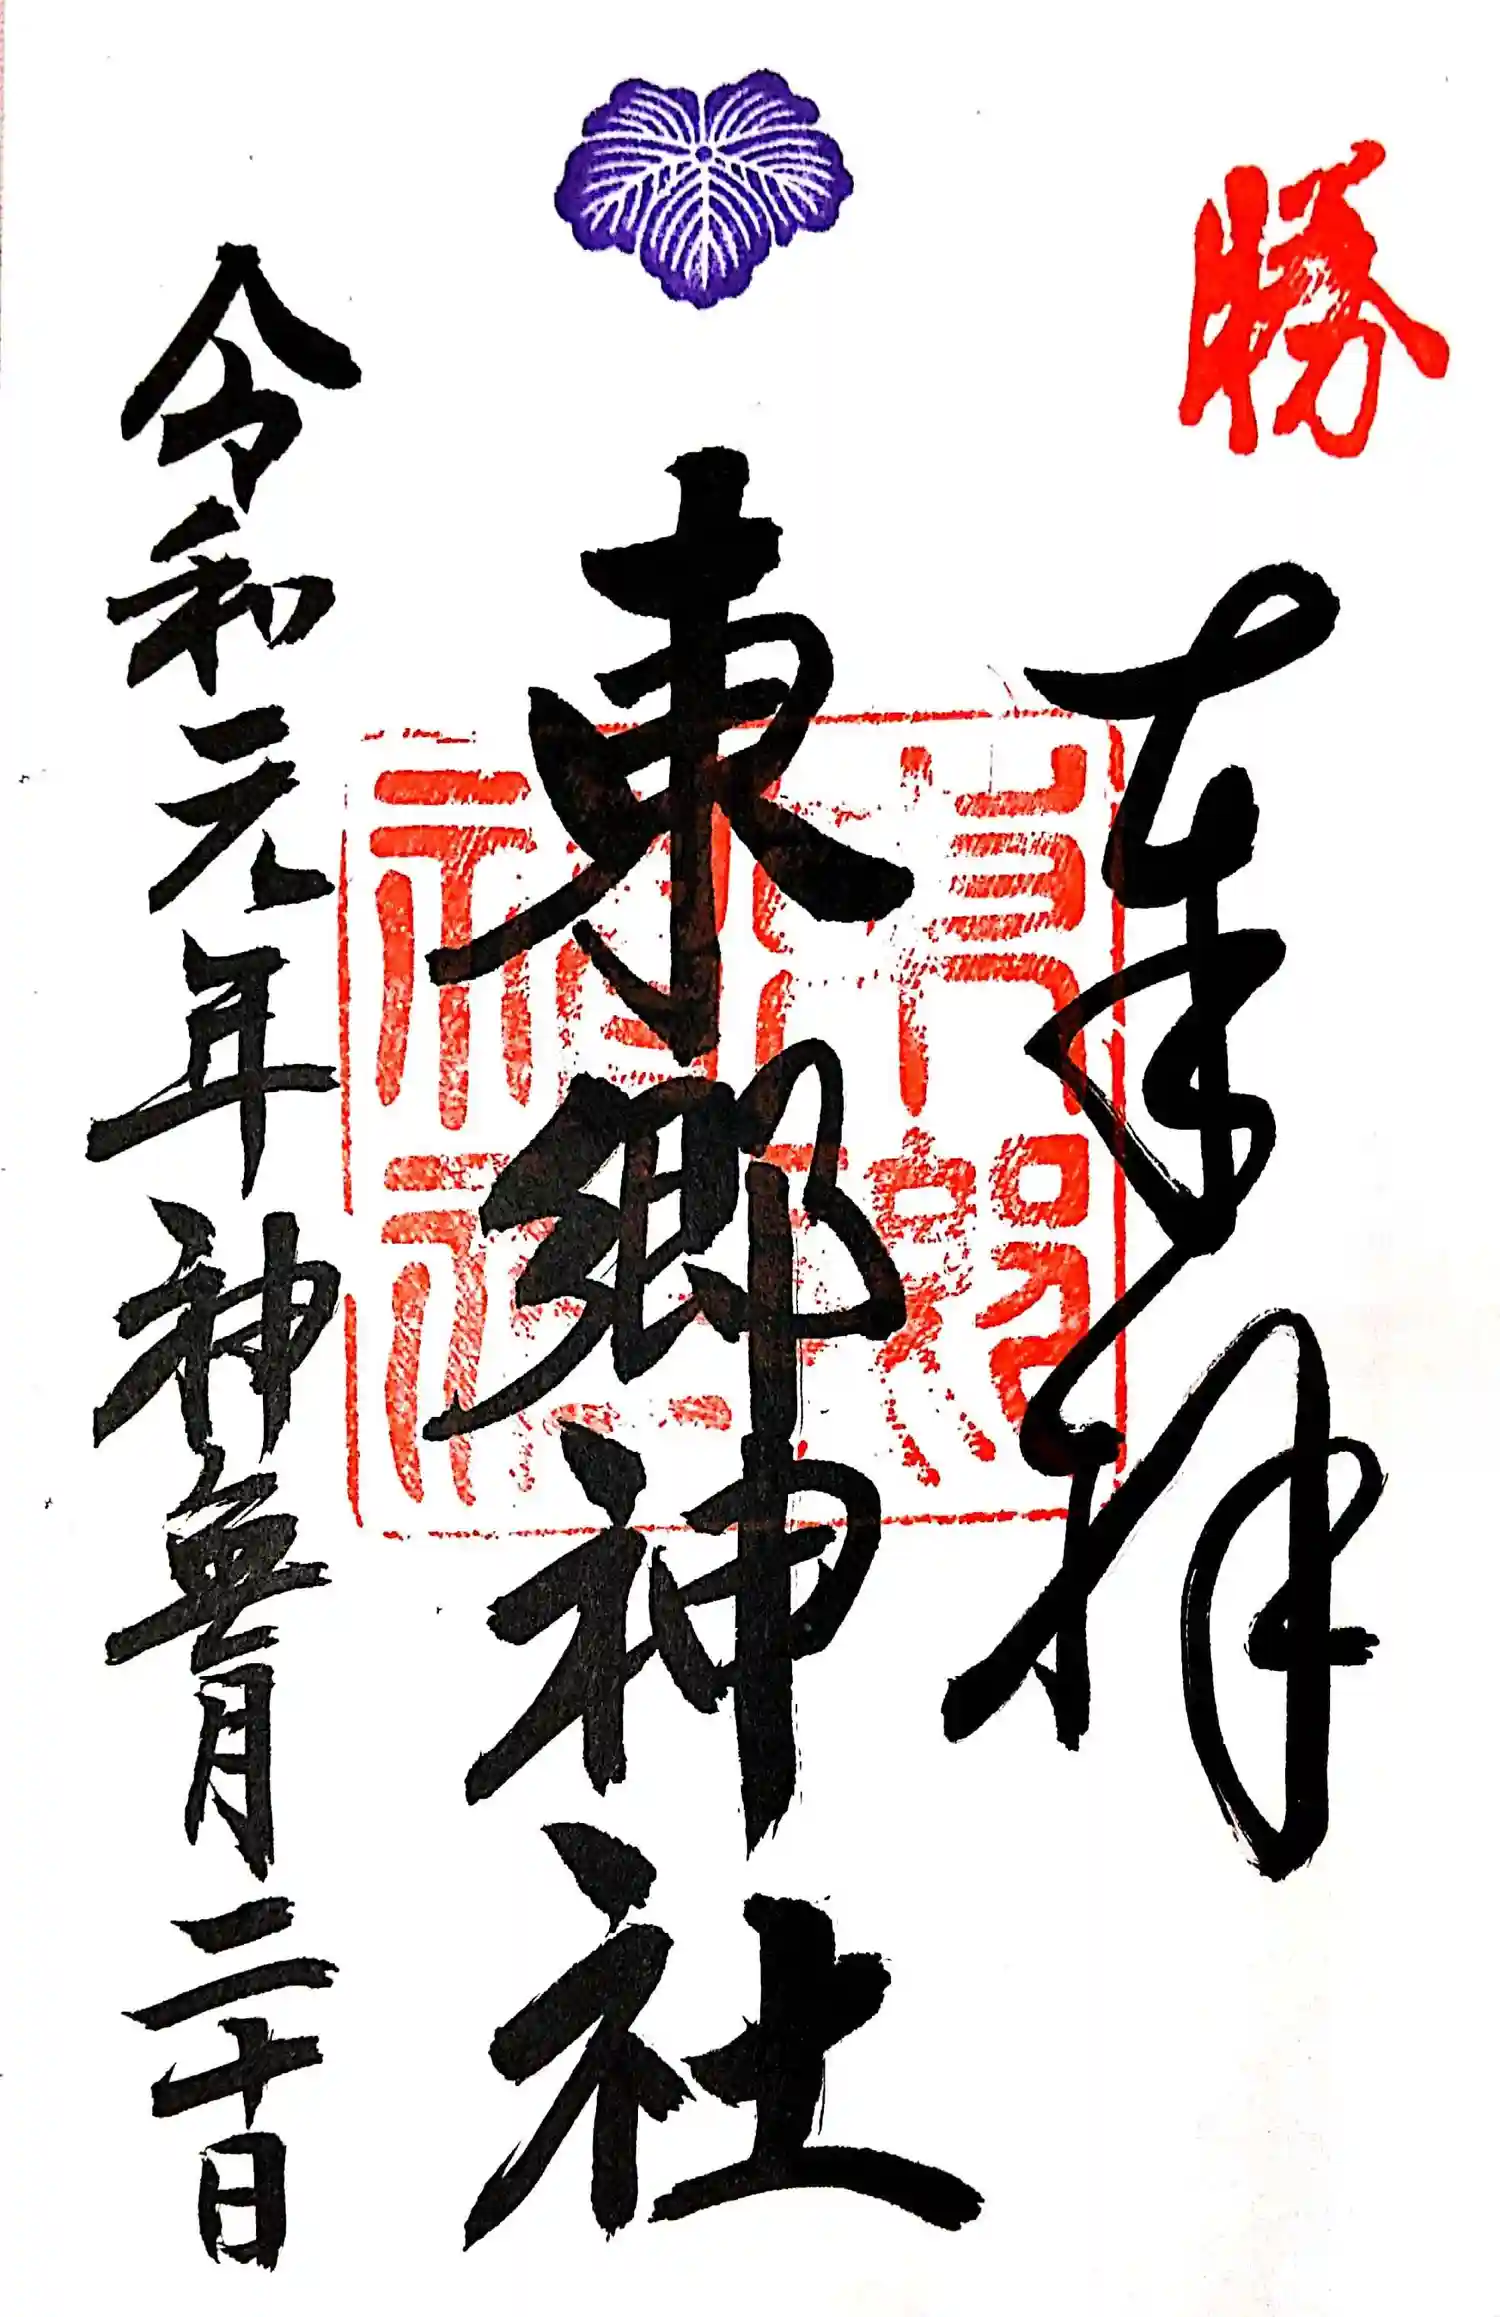 勝
奉拝
東郷神社
令和元年神無月二十日